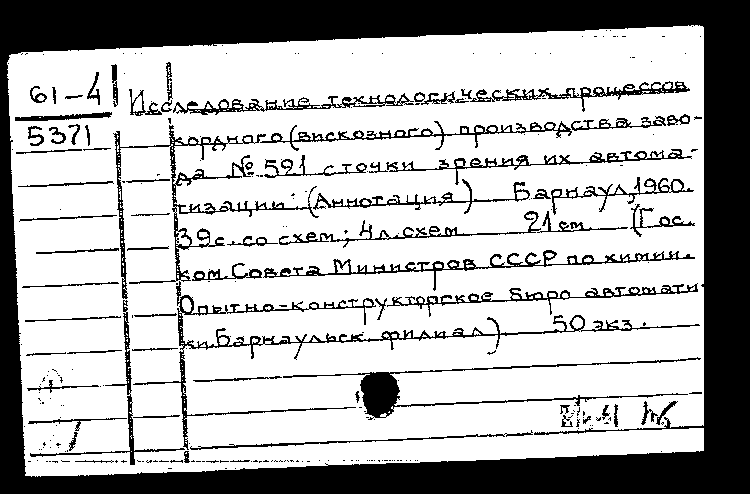 61-4
5371
Исследование технологических процессов
кордного (вискозного) производства заво-
да № 521 с точки зрения их автома-
тизации. (Аннотация). Барнаул, 1960.
39 с. со схем; 4 л. схем 21 см (Гос.
ком. Совета Министров СССР по химии.
Опытно-конструкторское бюро автомати-
ки. Барнаульск. филиал) 50 экз.